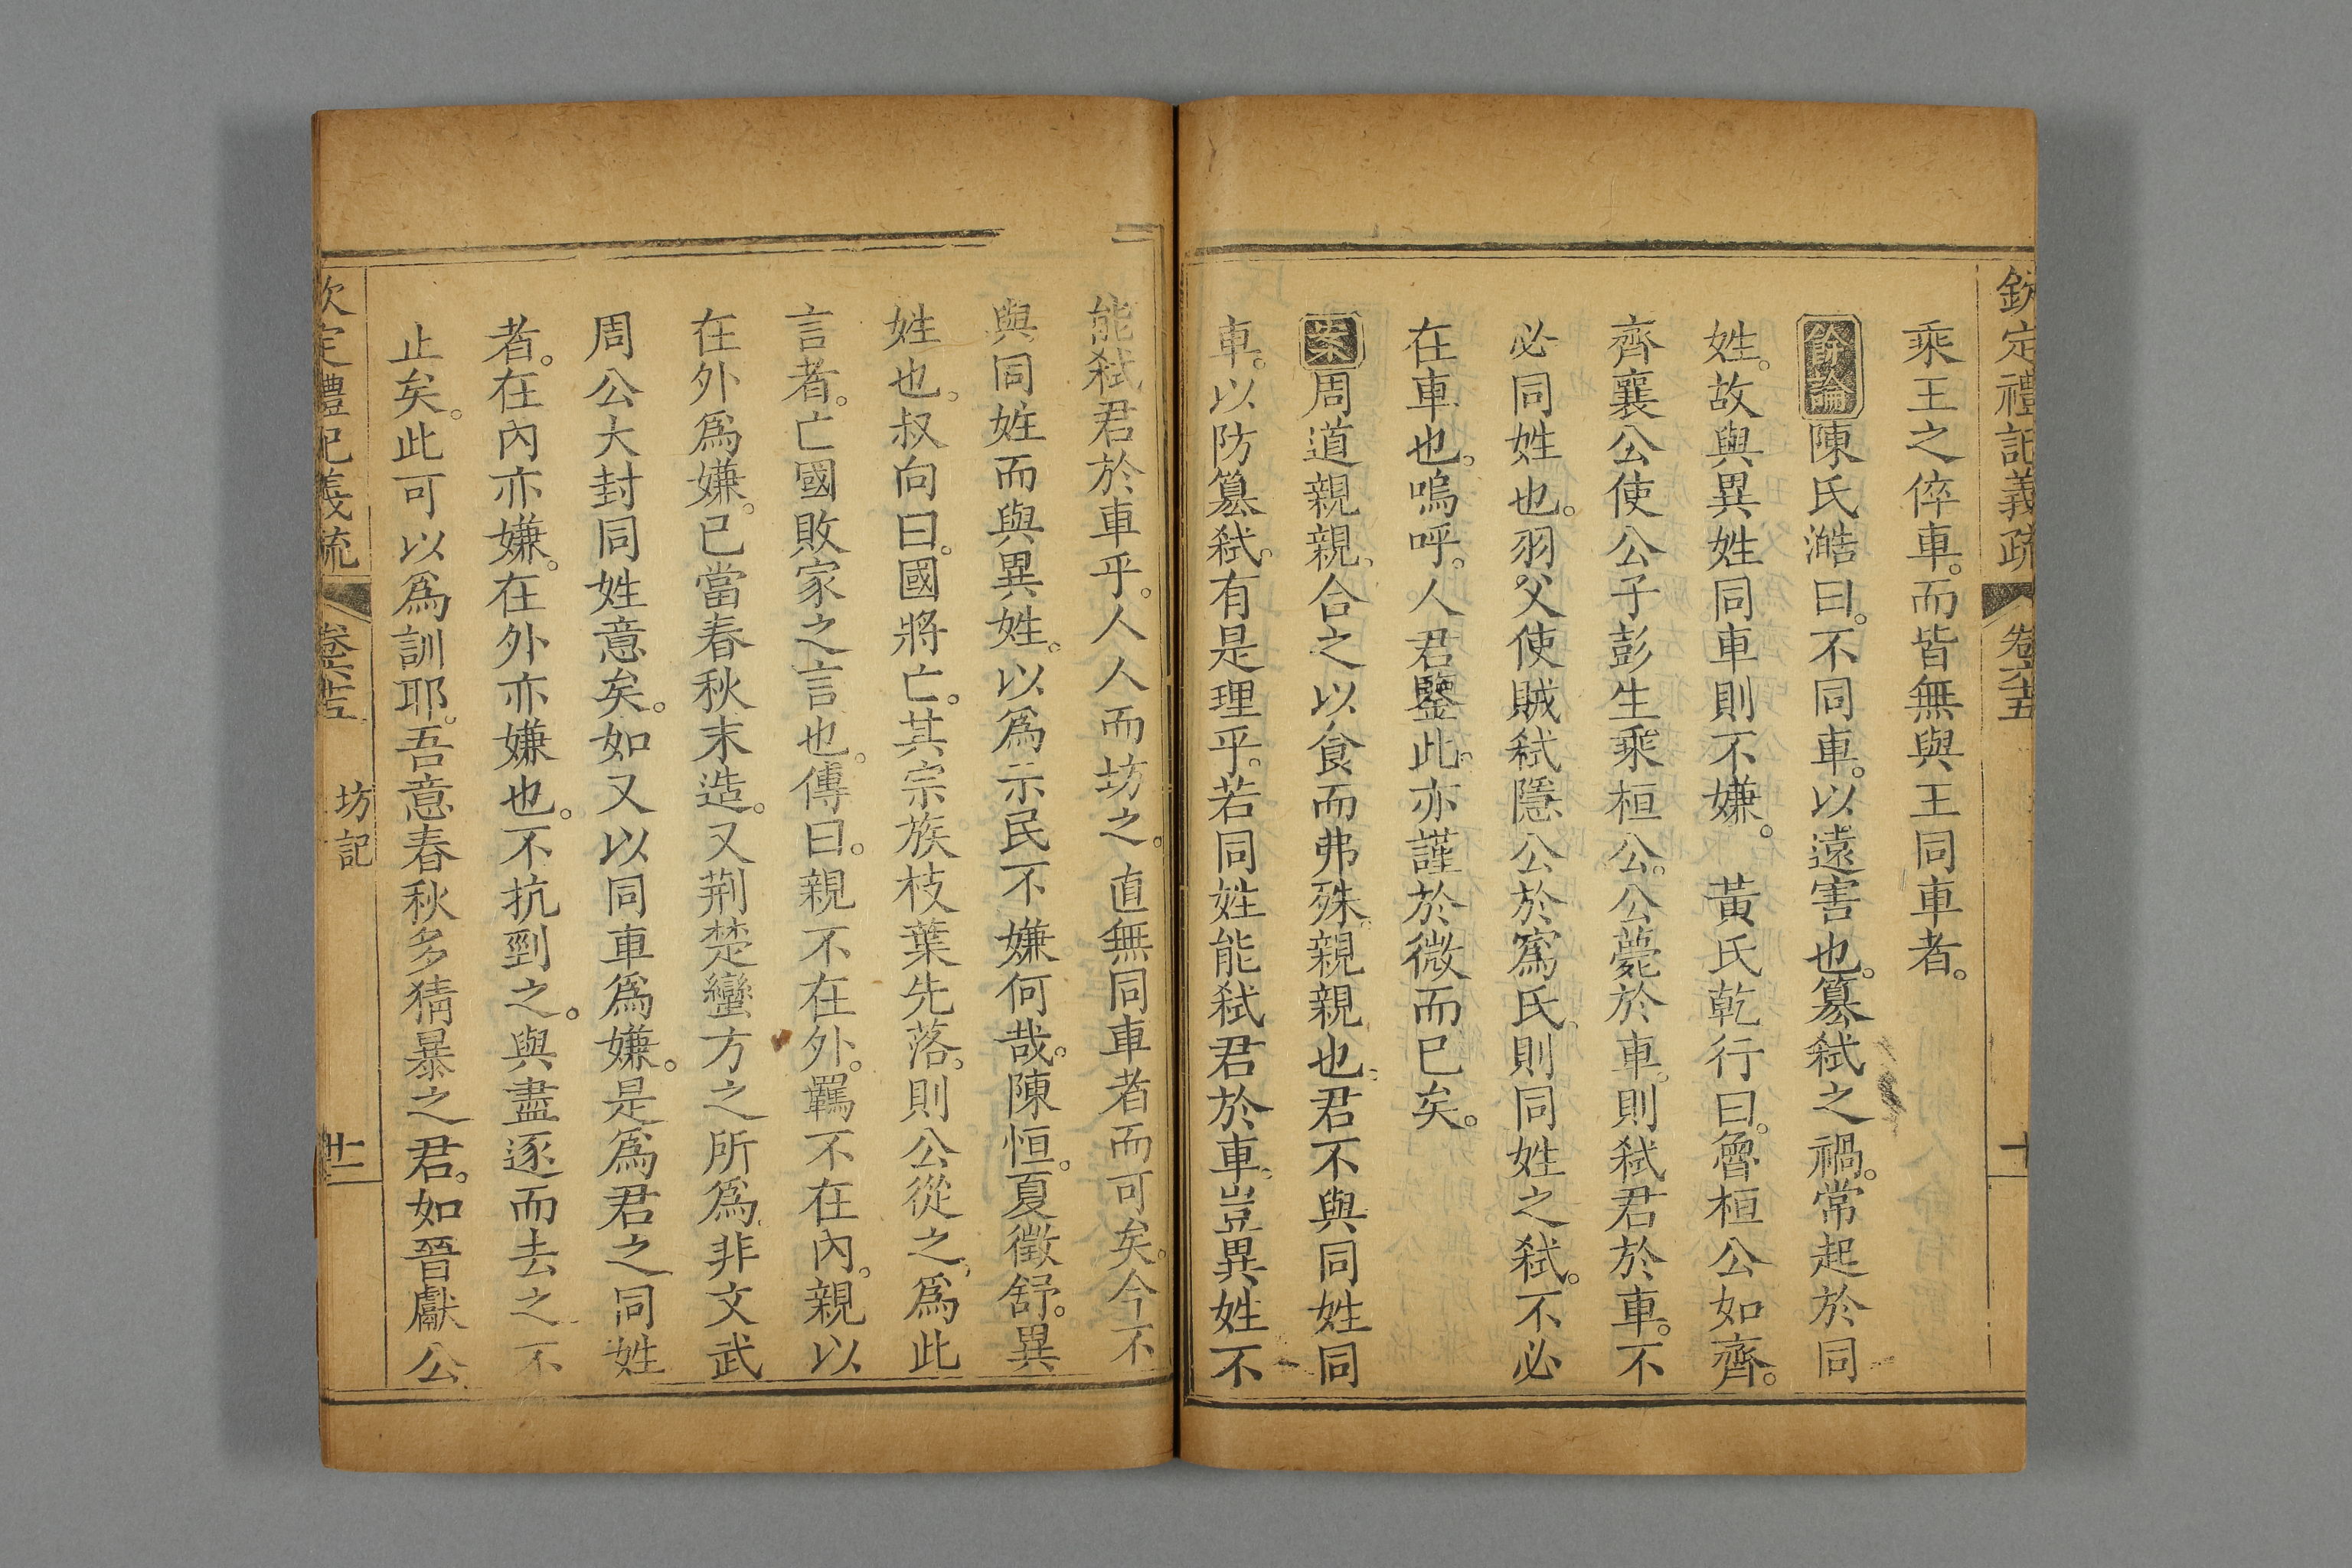 欽定禮記義疏 卷六十五 十
乘王之倅車。而皆無與王同車者。
餘論 陳氏澔曰。不同車。以遠害也。篡弑之禍。常起於同
姓。故與異姓同車則不嫌。 黃氏乾行曰。魯桓公如齊。
齊襄公使公子彭生乘桓公。公薨於車。則弑君於車。不
必同姓也。羽父使賊弑隱公於寪氏。則同姓之弑。不必
在車也。嗚呼。人君鑒此。亦謹於微而已矣。
案 周道親親。合之以食而弗殊。親親也。君不與同姓同
車。以防篡弑。有是理乎。若同姓能弑君於車。豈異姓不
能弑君於車乎。人人而坊之。直無同車者而可矣。今不
與同姓而與異姓。以爲示民不嫌何哉。陳恒。夏徵舒。異
姓也。叔向曰。國將亡。其宗族枝葉先落。則公從之。爲此
言者。亡國敗家之言也。傳曰。親不在外。羈不在內。親以
在外爲嫌。已當春秋末造。又荆楚蠻方之所爲。非文武
周公大封同姓意矣。如又以同車爲嫌。是爲君之同姓
者。在內亦嫌。在外亦嫌也。不抗剄之。與盡逐而去之不
止矣。此可以爲訓耶。吾意春秋多猜暴之君。如晉獻公
欽定禮記義疏 卷六十五 坊記 十一